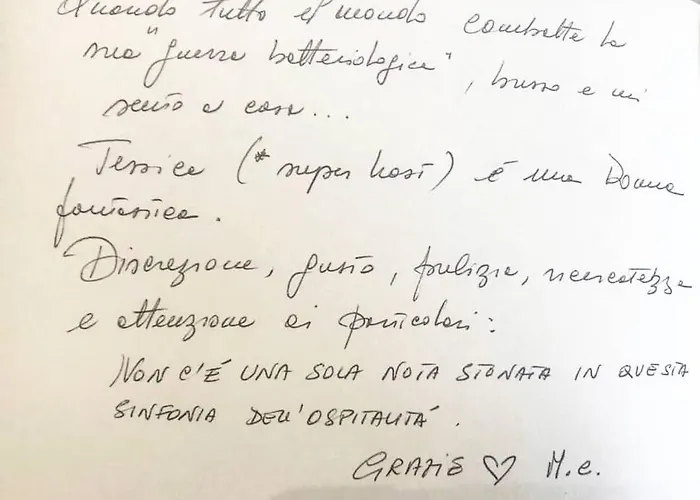 Quando tutto il mondo combatte la
sua "guerra batteriologica", busso e mi
sento a casa...
Jessica (*super host) è una Donna
fantastica.
Discrezione, gusto, pulizia, ricercatezza
e attenzione ai particolari:
NON C'É UNA SOLA NOTA STONATA IN QUESTA
SINFONIA DELL'OSPITALITÁ.
GRAZIE ♡ M.C.